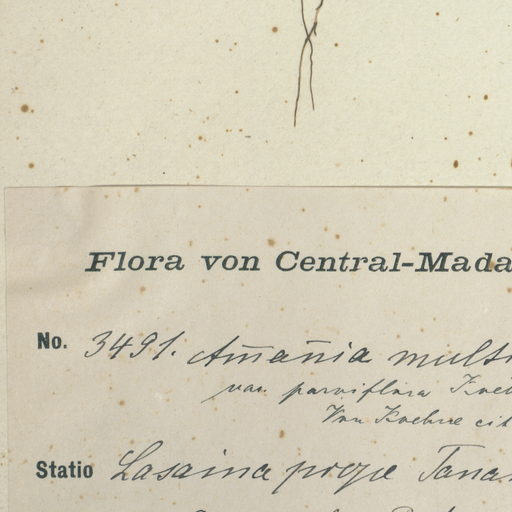 Flora von Central-Mada
No. 3491. Am̅an̅ia multi
var. parviflora Koeh
Von Koehne cit
Statio Lasaina prope Tana